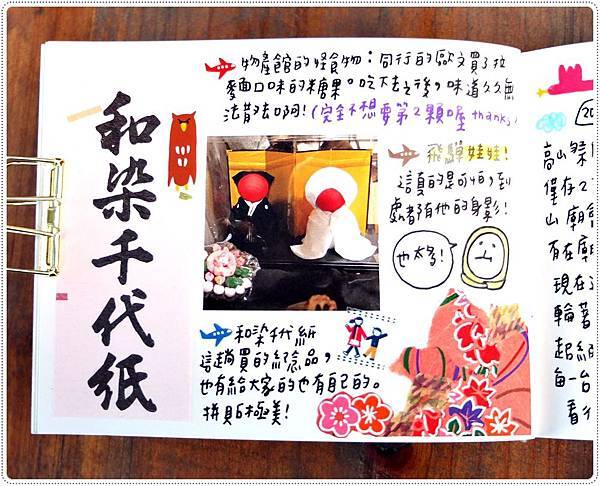 和染千代紙
物產館的怪食物：同行的歐文買了拉
麥面口味的糖果。吃下去後，味道久久無
法散去啊!(完全不想要第2顆喔 thanks)
飛驒娃娃!
這真的是可怕，到
處都有他的身影!
也太多!
和染千代紙
這趟買的紀念品，
也有給大家的也有自己的。
拼貼極美!
20
高山祭
僅在2
山廟
有在廟
現在
輪著
起
每一台
看